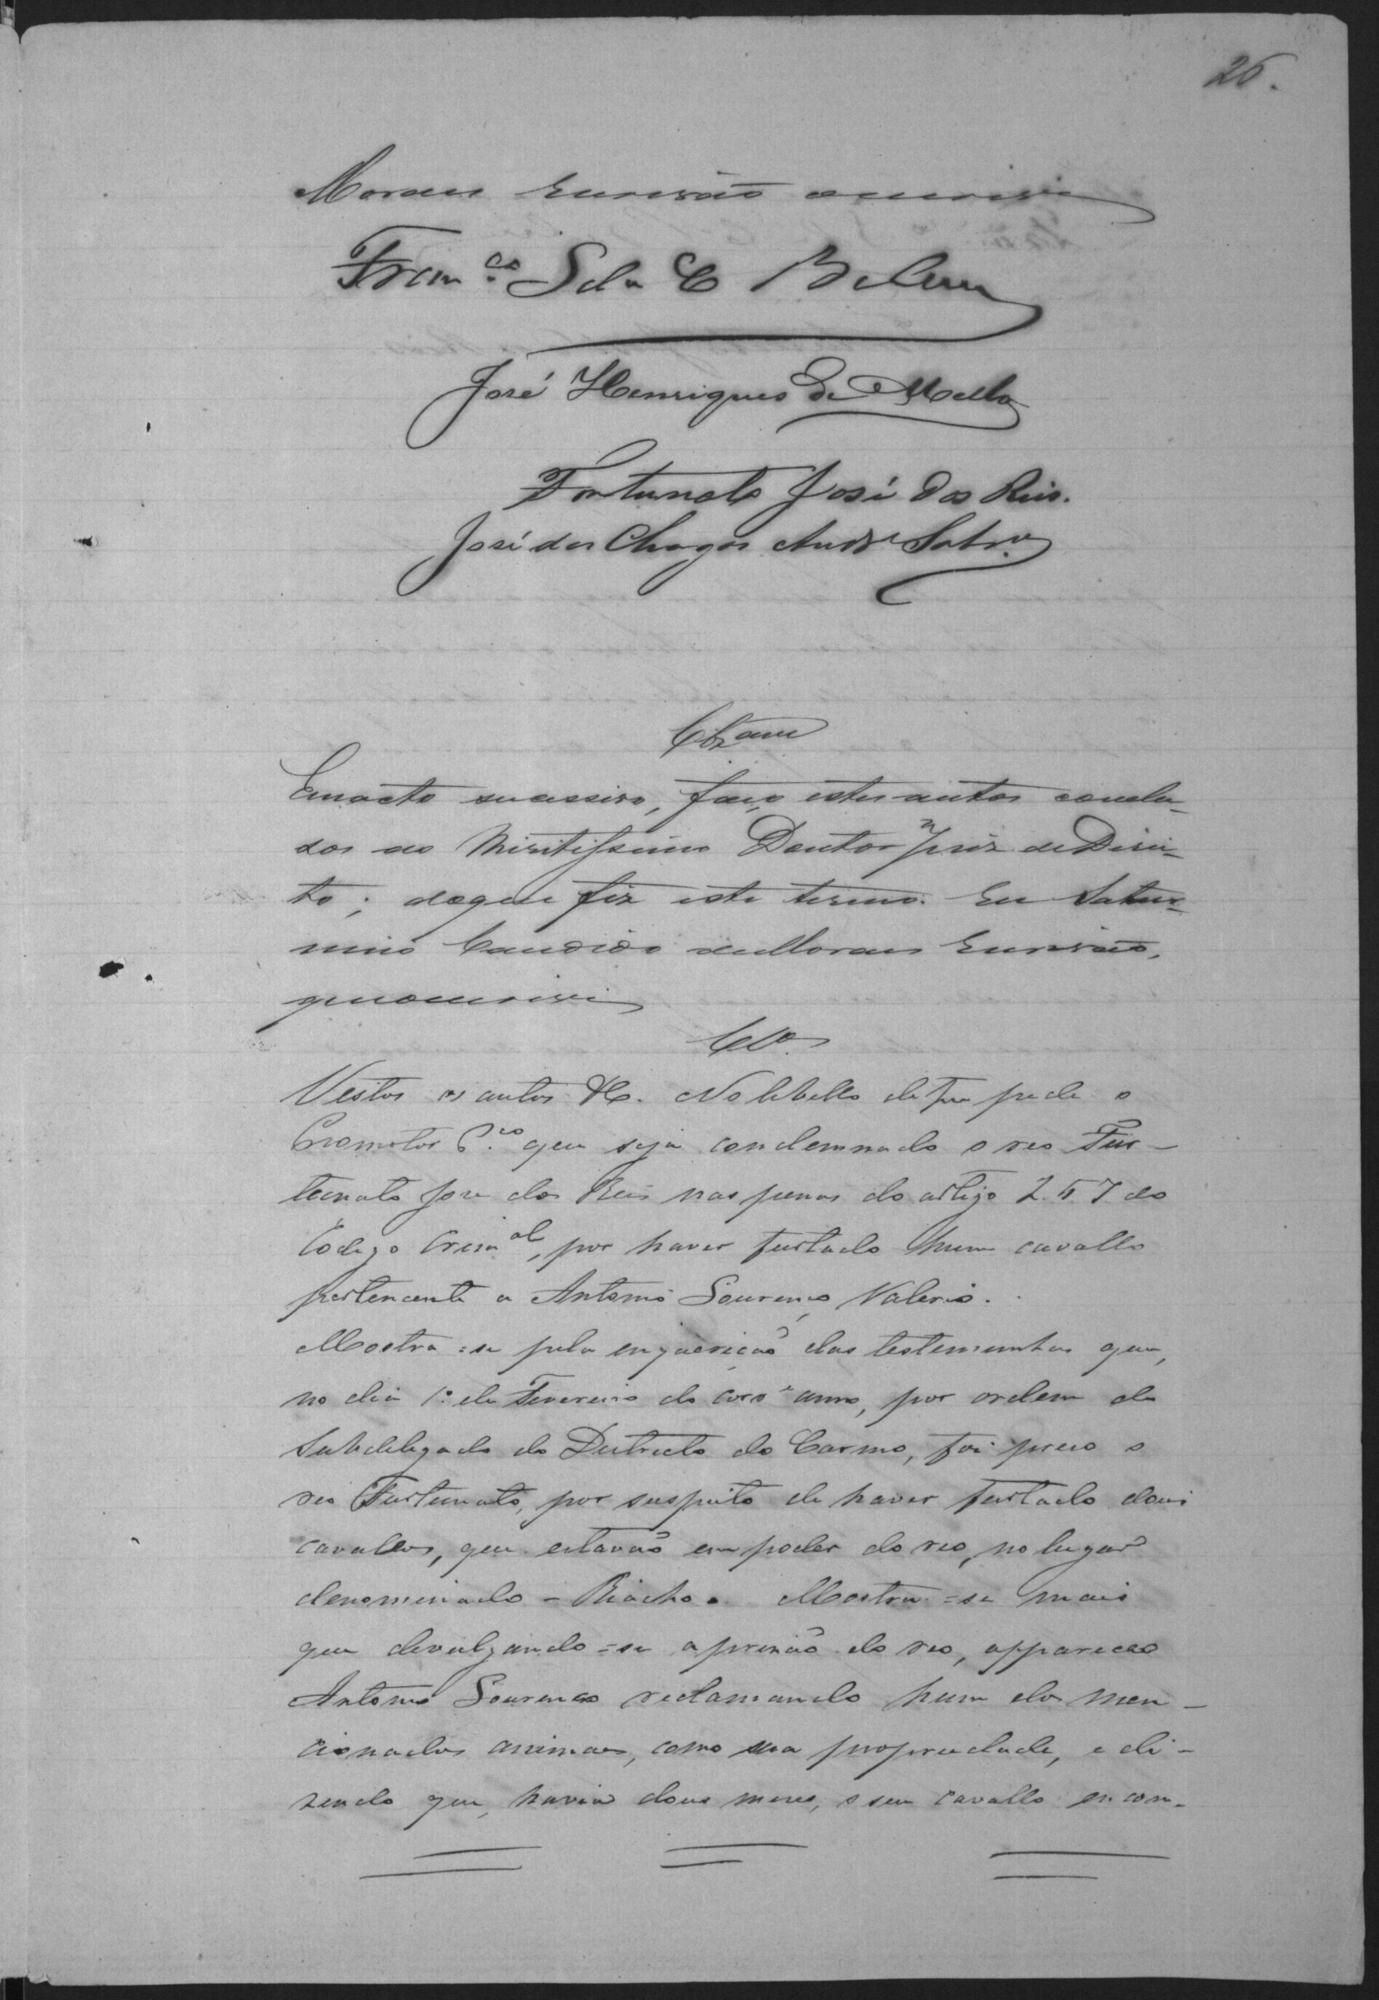 26.
Moraes Escrivão oescrivi
Fran.co
José Henriques de Mello
Fortunato José dos Reis.
José das Chagas Andr.e Sobr.o
Clzam
Em acto sucessivo, faço estes autos conclu-
zos ao Miritissimo Doutor Juiz de Direi-
to; doque fiz este termo. Eu Satur-
nino Candido de Moraes Escrivão,
que oescrivi
Clo.
Vistos os autos &. No libello de f pede o
Promotor P.co que seja condemnado o reo For-
tunato Jose dos Reis nas penas do artigo 257 do
Codigo Crim.al, por haver furtado hum cavallo
pertencente a Antonio Lourenço Valerio.
Mostra-se pela enquerição das testemunhas que,
no dia 1.º de Fevereiro do corr.e anno, por ordem do
Subdelegado do Districto do Carmo, foi preso o
reo Fortunato, por suspeito de haver furtado dous
cavallos, que estavão em poder do reo, no lugar
denominado - Riacho. Mostra-se mais
que devulgando-se a prisão do reo, appareceo
Antonio Lourenço reclamando hum dos men-
cionados animaes, como sua propriedade, e di-
zendo que, havia dous mezes, o seu cavallo encon-